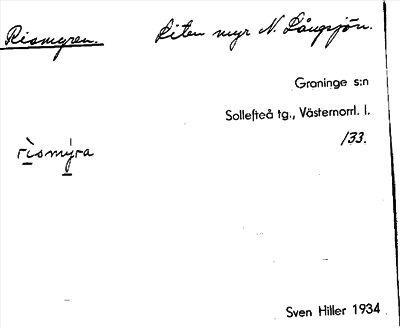 Rismyren. Liten myr N. Långsjön.
Graninge s:n
Sollefteå tg., Västernorrl. l.
/33.
rismyra
Sven Hiller 1934